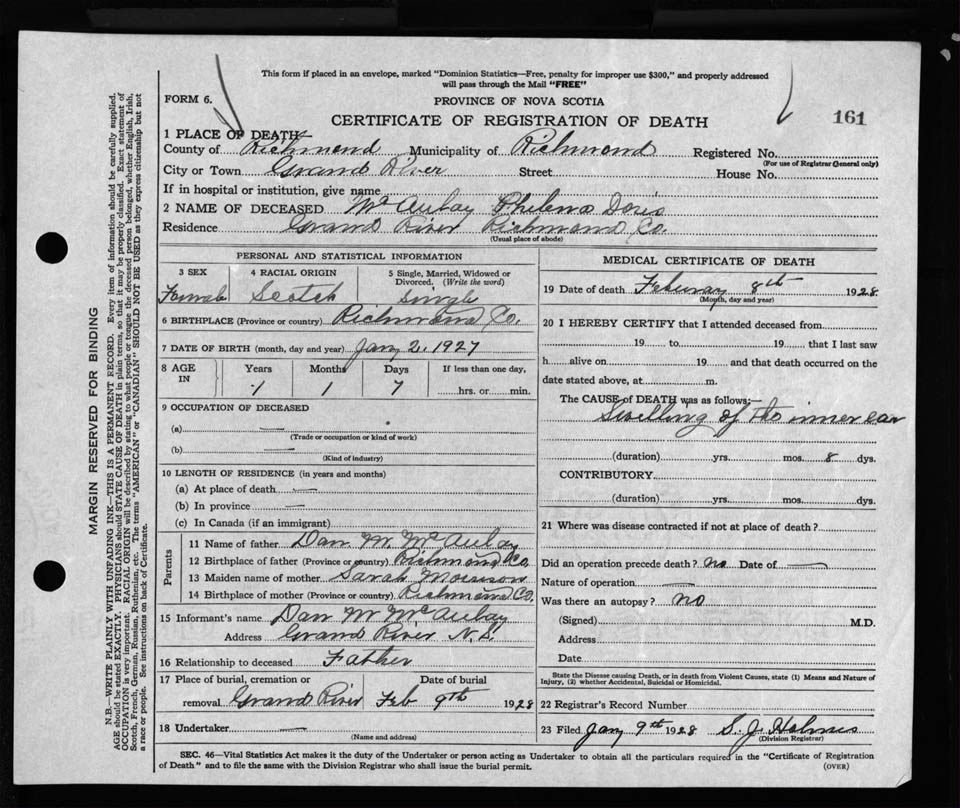 This form if placed in an envelope, marked "Dominion Statistics—Free, penalty for improper use $300," and properly addressed
will pass through the Mail "FREE"
FORM 6.
PROVINCE OF NOVA SCOTIA
CERTIFICATE OF REGISTRATION OF DEATH
161
1 PLACE OF DEATH
County of Richmond Municipality of Richmond Registered No.
(For use of Registrar General only)
City or Town Grand River Street House No.
If in hospital or institution, give name
2 NAME OF DECEASED McAulay Phelena Doris
Residence Grand River Richmond Co.
(Usual place of abode)
PERSONAL AND STATISTICAL INFORMATION
3 SEX 4 RACIAL ORIGIN 5 Single, Married, Widowed or
Divorced. (Write the word)
Female Scotch Single
6 BIRTHPLACE (Province or country) Richmond Co.
7 DATE OF BIRTH (month, day and year) Jany 2, 1927
8 AGE IN Years Months Days If less than one day,
1 1 7 hrs. or min.
9 OCCUPATION OF DECEASED
(a) —
(Trade or occupation or kind of work)
(b) —
(Kind of industry)
10 LENGTH OF RESIDENCE (in years and months)
(a) At place of death —
(b) In province —
(c) In Canada (if an immigrant)
Parents
11 Name of father Dan W. McAulay
12 Birthplace of father (Province or country) Richmond Co.
13 Maiden name of mother Sarah Morrison
14 Birthplace of mother (Province or country) Richmond Co.
15 Informant's name Dan W McAulay
Address Grand River N.S.
16 Relationship to deceased Father
17 Place of burial, cremation or Date of burial
removal Grand River Feb 9th 1928
18 Undertaker —
(Name and address)
MEDICAL CERTIFICATE OF DEATH
19 Date of death February 8th 1928
(Month, day and year)
20 I HEREBY CERTIFY that I attended deceased from
19 to 19 , that I last saw
h alive on 19 and that death occurred on the
date stated above, at m.
The CAUSE of DEATH was as follows:—
Swelling of the inner ear
(duration) yrs. mos. 8 dys.
CONTRIBUTORY.
(duration) yrs. mos. dys.
21 Where was disease contracted if not at place of death?
Did an operation precede death? no Date of —
Nature of operation —
Was there an autopsy? no
(Signed) M.D.
Address
Date
State the Disease causing Death, or in death from Violent Causes, state (1) Means and Nature of
Injury, (2) whether Accidental, Suicidal or Homicidal.
22 Registrar's Record Number
23 Filed Jany 9th 1928 S. J. Holmes
(Division Registrar)
SEC. 46—Vital Statistics Act makes it the duty of the Undertaker or person acting as Undertaker to obtain all the particulars required in the "Certificate of Registration
of Death" and to file the same with the Division Registrar who shall issue the burial permit.
(OVER)
MARGIN RESERVED FOR BINDING
N.B.—WRITE PLAINLY WITH UNFADING INK—THIS IS A PERMANENT RECORD. Every item of information should be carefully supplied.
AGE should be stated EXACTLY. PHYSICIANS should STATE CAUSE OF DEATH in plain terms, so that it may be properly classified. Exact statement of
OCCUPATION is very important. RACIAL ORIGIN will be described by stating to what people or tongue the deceased person belonged, whether English, Irish,
Scotch, French, German, Russian, Ruthenian, etc. The terms "AMERICAN" or "CANADIAN" SHOULD NOT BE USED as they express citizenship but not
a race or people. See instructions on back of Certificate.